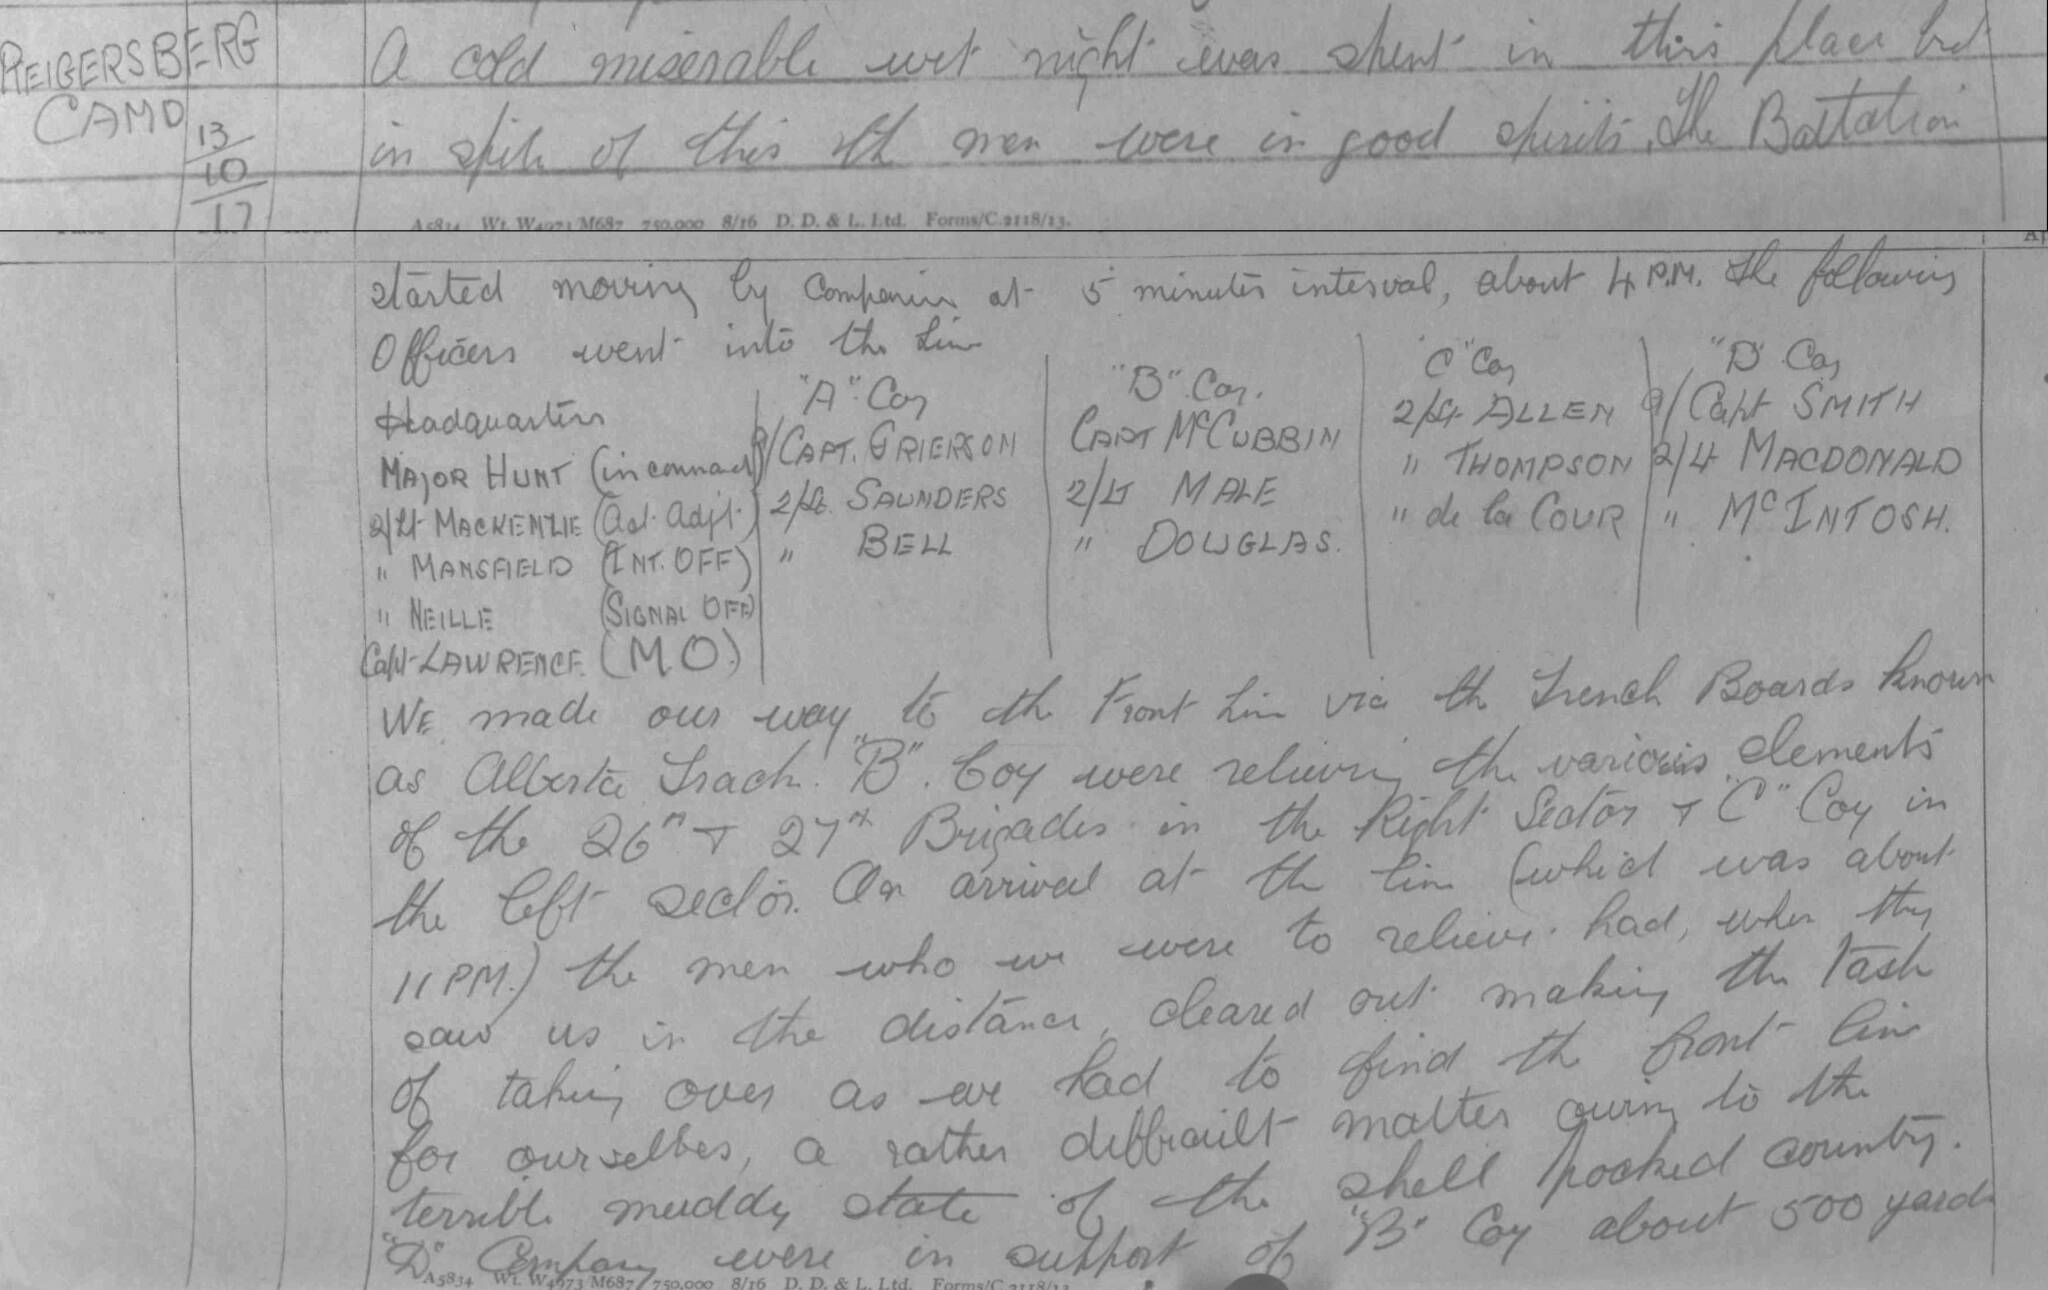 REIGERSBERG
CAMP
13/10/17
A cold miserable wet night was spent in this place but
in spite of this the men were in good spirits. The Battalion
A5834 Wt. W4973/M687 750,000 8/16 D. D. & L. Ltd. Forms/C.2118/13.
started moving by Companies at 5 minutes interval, about 4 P.M. The following
Officers went into the Line
Headquarters
MAJOR HUNT (in command)
2/Lt MACKENZIE (Act. Adjt.)
" MANSFIELD (INT. OFF)
" NEILLE (SIGNAL OFF)
Capt LAWRENCE (M.O.)
"A" Coy
A/CAPT. GRIERSON
2/Lt. SAUNDERS
" BELL
"B" Coy.
CAPT McCUBBIN
2/Lt MALE
" DOUGLAS.
"C" Coy
2/Lt ALLEN
" THOMPSON
" de la COUR
"D" Coy
A/Capt SMITH
2/Lt MACDONALD
" McINTOSH.
WE made our way to the Front Line via the Trench Boards known
as Alberta Track. "B". Coy were relieving the various elements
of the 26th & 27th Brigades in the Right Sector & "C" Coy in
the left sector. On arrival at the line (which was about
11 PM.) the men who we were to relieve had, when they
saw us in the distance, cleared out making the task
of taking over as we had to find the front line
for ourselves, a rather difficult matter owing to the
terrible muddy state of the shell pocked country.
"D" Company were in support of "B" Coy about 500 yards
A5834 Wt. W4973/M687 750,000 8/16 D. D. & L. Ltd. Forms/C.2118/13.